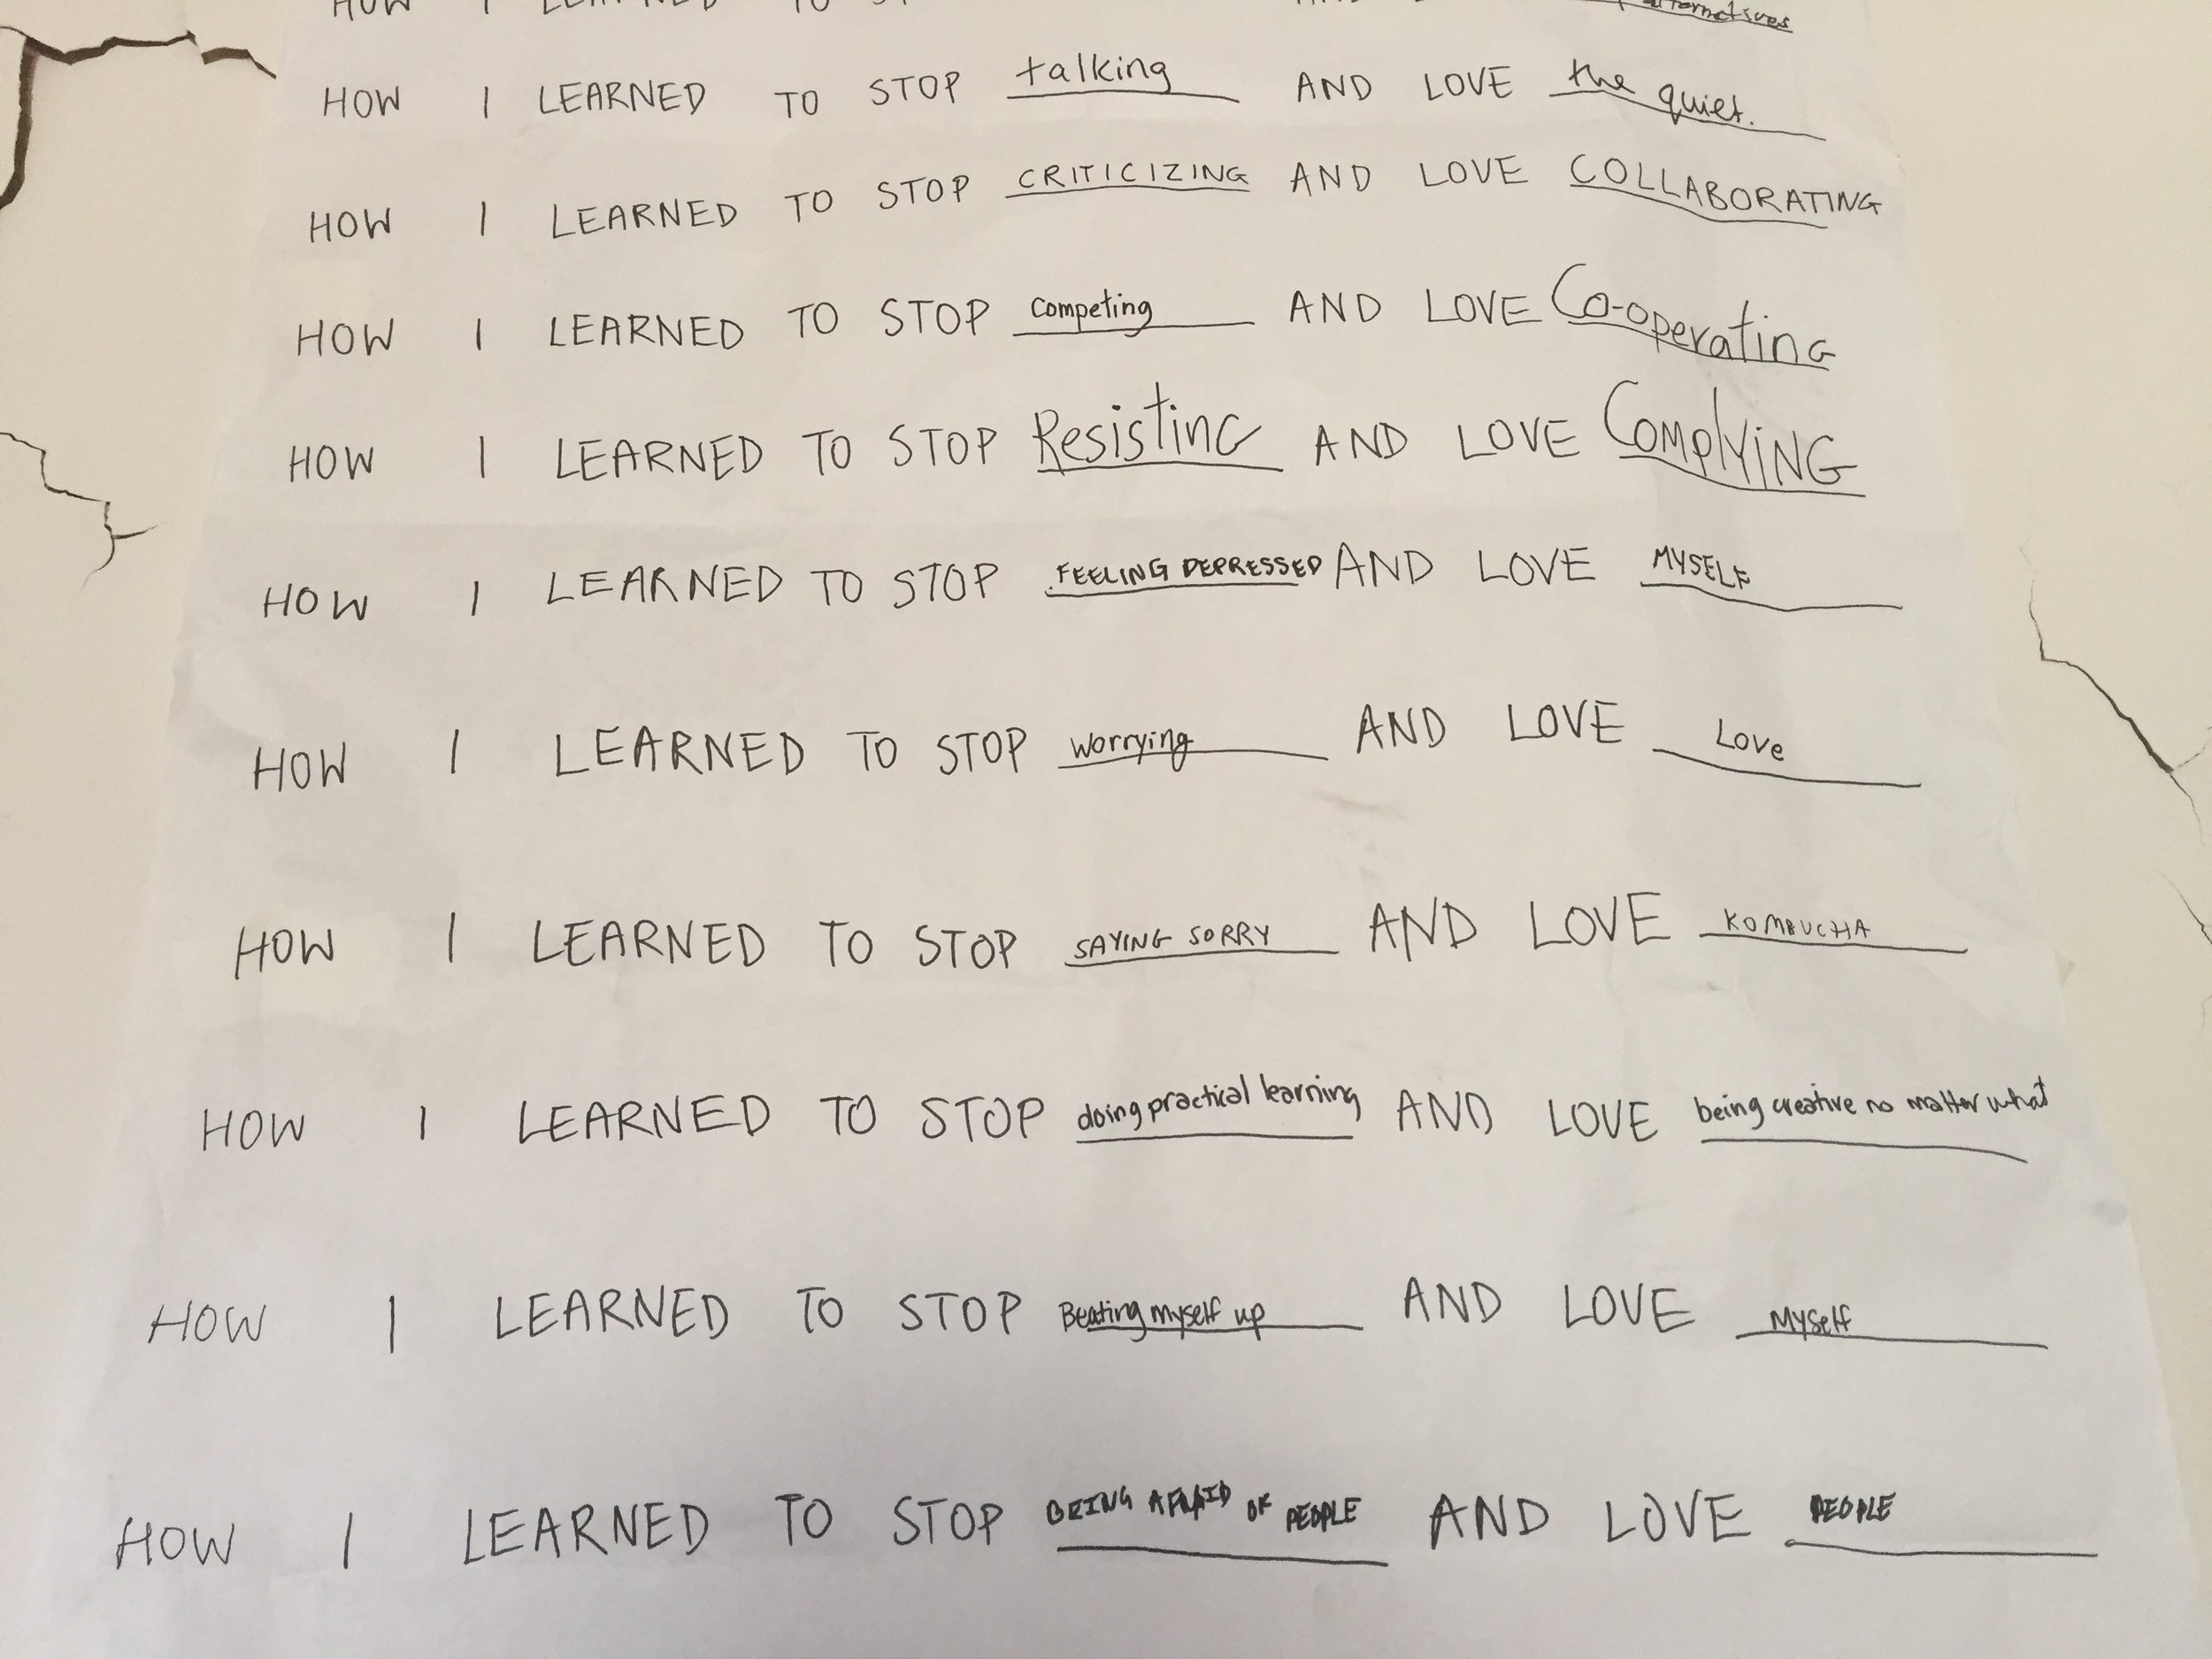 HOW I LEARNED TO alternatives
HOW I LEARNED TO STOP talking AND LOVE the quiet.
HOW I LEARNED TO STOP CRITICIZING AND LOVE COLLABORATING
HOW I LEARNED TO STOP Competing AND LOVE Co-operating
HOW I LEARNED TO STOP Resisting AND LOVE COMPlYiNG
HOW I LEARNED TO STOP FEELING DEPRESSED AND LOVE MYSELF
HOW I LEARNED TO STOP worrying AND LOVE Love
HOW I LEARNED TO STOP SAYING SORRY AND LOVE KOMBUCHA
HOW I LEARNED TO STOP doing practical learning AND LOVE being creative no matter what
HOW I LEARNED TO STOP Beating myself up AND LOVE Myself
HOW I LEARNED TO STOP BEING AFRAID OF PEOPLE AND LOVE PEOPLE